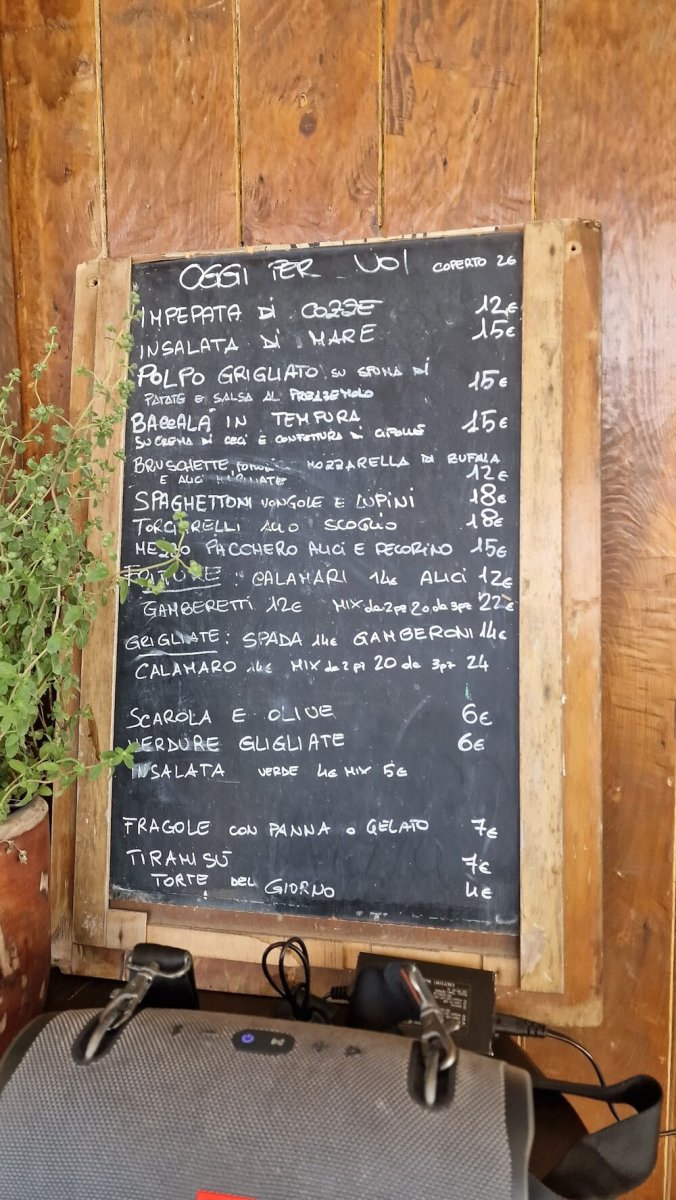 OGGI PER VOI COPERTO 2€
IMPEPATA DI COZZE 12€
INSALATA DI MARE 15€
POLPO GRIGLIATO SU SPUMA DI
PATATE E SALSA AL PREZZEMOLO 15€
BACCALA' IN TEMPURA 15€
SU CREMA DI CECI E CONFETTURA DI CIPOLLE
BRUSCHETTE, MOZZARELLA DI BUFALA
E ALICI MARINATE 12€
SPAGHETTONI VONGOLE E LUPINI 18€
TORCINELLI ALLO SCOGLIO 18€
MEZZO PACCHERO ALICI E PECORINO 15€
FRITTURE: CALAMARI 14€ ALICI 12€
GAMBERETTI 12€ MIX da 2 pz 20 da 3 pz 22€
GRIGLIATE: SPADA 14€ GAMBERONI 14€
CALAMARO 14€ MIX da 2 pz 20 da 3 pz 24
SCAROLA E OLIVE 6€
VERDURE GLIGLIATE 6€
INSALATA VERDE 4€ MIX 5€
FRAGOLE CON PANNA O GELATO 7€
TIRAMISÙ 7€
TORTE DEL GIORNO 4€